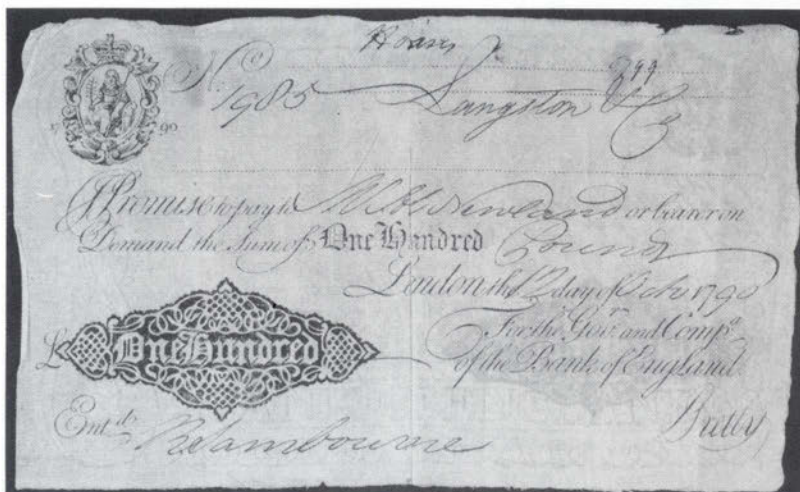 No
1985
Langston & Co
17 90
I Promise to pay to or bearer on
Demand the Sum of One Hundred Pounds
London the 12 day of Octo 1790
For the Govr. and Compa.
of the Bank of England
£ One Hundred
Entd.